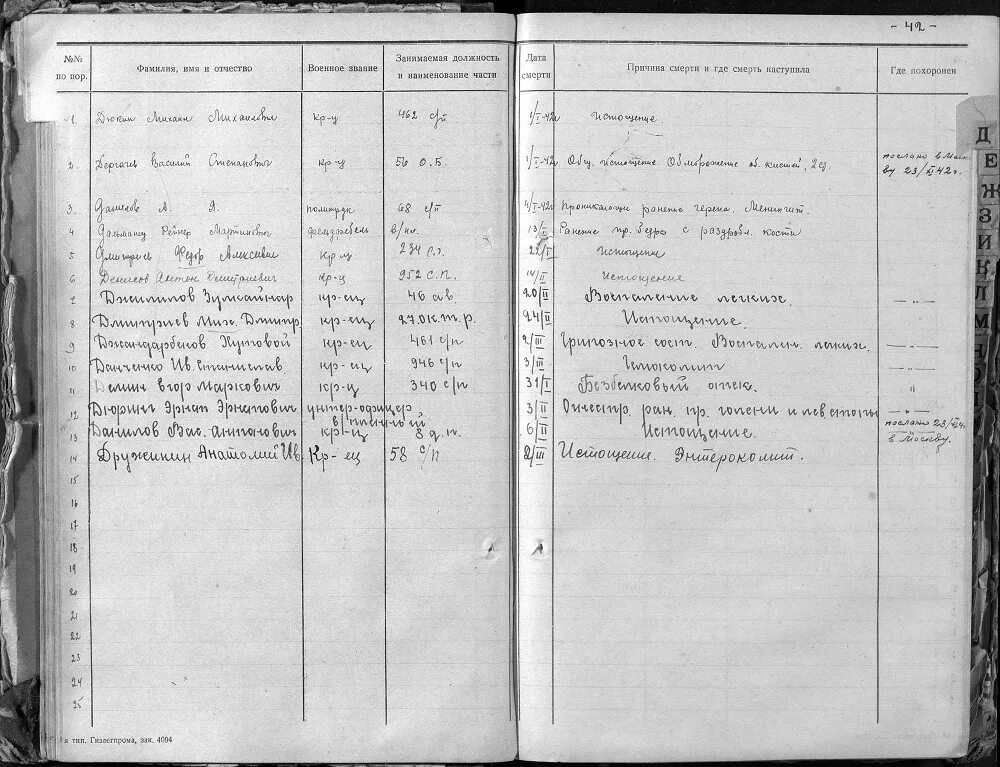 - 42 -
№№ по пор. Фамилия, имя и отчество Военное звание Занимаемая должность и наименование части Дата смерти Причина смерти и где смерть наступила Где похоронен
1. Михаил Михайлович кр-ц 462 с/п 1/I-42г Истощение.
2. Василий Степанович кр-ц 56 О.Б. 1/I-42 Общ. истощение. Обморожение об. кистей, 2 ст. послано в Москву 23/XI 42г.
3. А. Я. политрук 68 с/п 4/I-42г Проникающ. ранение черепа. Менингит.
4 Рейнер Мартинович фельдфебель в/пл. 13/I Ранение пр. бедра с раздробл. кости
5 Дмитриев Федор Алексеевич кр-ц 234 с.п. 22/I Истощение
6 Денисов Антон Дмитриевич кр-ц 952 с.п. 14/II Истощение
7 Джалилов Зулкайнар кр-ец 46 а.в. 20/II Воспаление легких. — „ —
8 Дмитриев Мих. Дмитр. кр-ец 270 к.т.р. 24/II Истощение.
9 Джандарбеков Кутовой кр-ец 461 с/п 2/III Гриппозное сост. Воспален. легких. — „ —
10 Данченко Ив. Станислав. кр-ец 946 с/п 3/III
11 Демин Егор Маркович кр-ц 340 с/п 31/I Безбелковый отек. "
12 Дюринг Эрнст Эрнстович унтер-офицер в/пленный 3/II Огнестр. ран. пр. голени и лев стопы — „ —
13 Данилов Вас. Антонович кр-ц 8 д.п. 6/II Истощение. послано 23/XI 42г. в Москву.
14 Дружинин Анатолий Ив. Кр-ец 58 с/п 2/III Истощение. Энтероколит.
15
16
17
18
19
20
21
22
23
24
25
я тип. Гизлегпрома, зак. 4094
Д
Е
Ж
З
И
К
Л
М